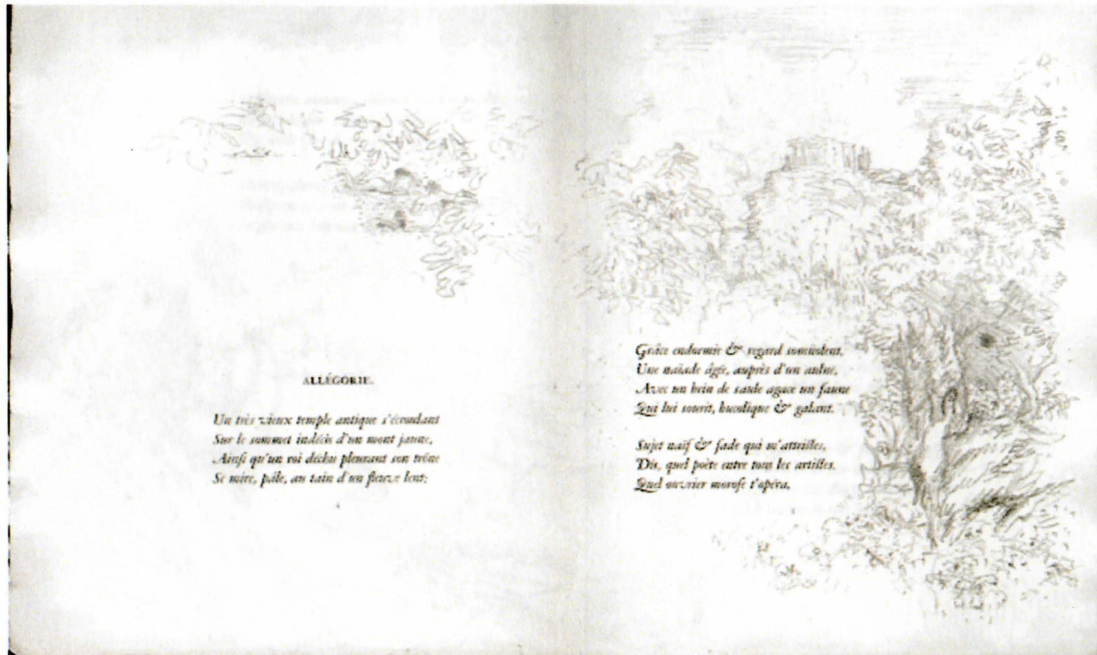 ALLÉGORIE.
Un très vieux temple antique s'écroulant
Sur le sommet indécis d'un mont jaune,
Ainſi qu'un roi déchu pleurant son trône
Se mire, pâle, au tain d'un fleuve lent;
Grâce endormie & regard somnolent,
Une naïade âgée, auprès d'un aulne,
Avec un brin de saule agace un faune
Qui lui sourit, bucolique & galant.
Sujet naïf & fade qui m'attriſtes,
Dis, quel poète entre tous les artiſtes,
Quel ouvrier moroſe t'opéra,